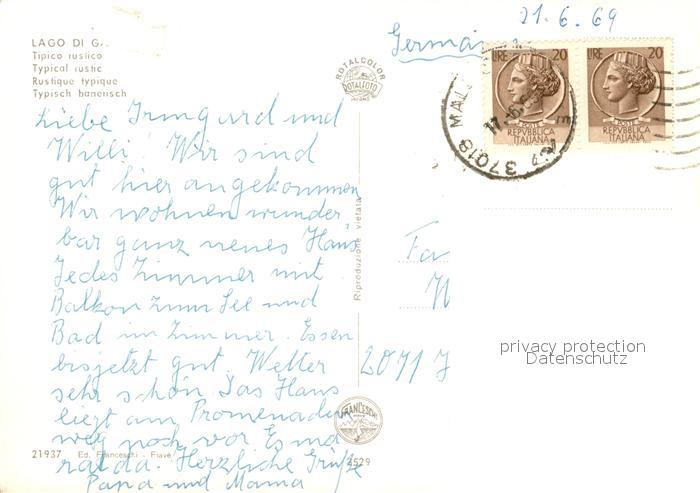 21.6.69
LAGO DI GA
Tipico rustico
Typical rustic
Rustique typique
Typisch bäuerisch
ROTALCOLOR
ROTALFOTO
MILANO
Germania
LIRE 20
POSTE
REPVBBLICA
ITALIANA
LIRE 20
POSTE
REPVBBLICA
ITALIANA
37018 MAL
Liebe Irmgard und
Willi! Wir sind
gut hier angekommen
Wir wohnen wunder
bar ganz neues Haus
Jedes Zimmer mit
Balkon zum See und
Bad im Zimmer. Essen
bisjetzt gut. Wetter
sehr schön Das Haus
liegt am Promenaden
weg noch vor Esmo
ralda. Herzliche Grüße
Papa und Mama
Riproduzione vietata
Fa
2071 J
privacy protection
Datenschutz
FRANCESCHI
21937 Ed. Franceschi - Fiavé
4529